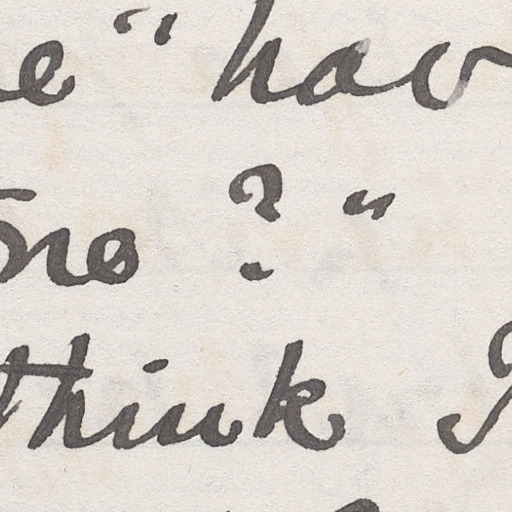 e " hav
one ? "
think I